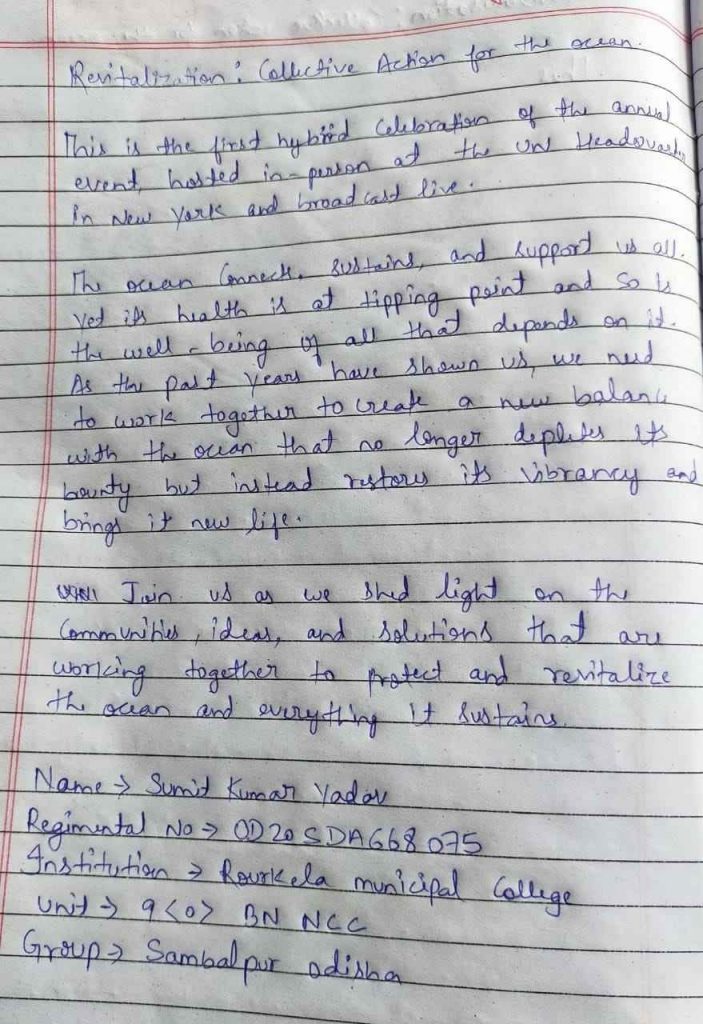 Revitalization : Collective Action for the ocean.
This is the first hybrid Celebration of the annual
event, hosted in-person at the UN Headquarter
in New York and broadcast live.
The ocean Connects, sustains, and support us all.
Yet its health is at tipping point and so is
the well-being of all that depends on it.
As the past years have shown us, we need
to work together to create a new balance
with the ocean that no longer depletes its
bounty but instead restores its vibrancy and
brings it new life.
Join us as we shed light on the
Communities, ideas, and solutions that are
working together to protect and revitalize
the ocean and everything it sustains.
Name → Sumit Kumar Yadav
Regimental No → OD20SDA668075
Institution → Rourkela municipal College
Unit → 9 <0> BN NCC
Group → Sambalpur odisha